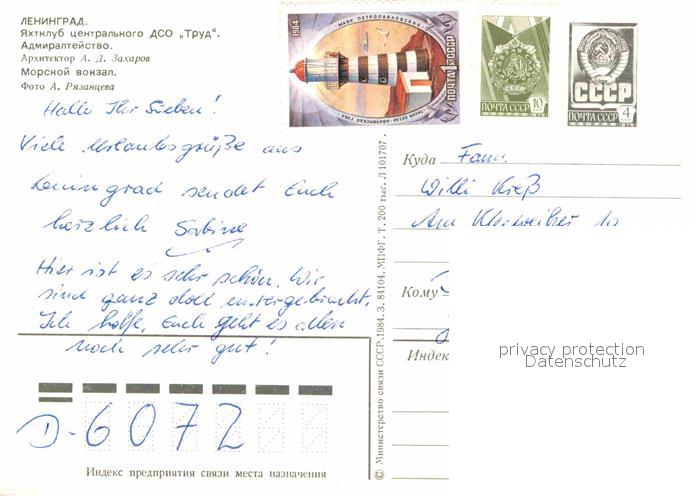 ЛЕНИНГРАД.
Яхтклуб центрального ДСО „Труд“.
Адмиралтейство.
Архитектор А. Д. Захаров
Морской вокзал.
Фото А. Рязанцева
1984
МАЯК ПЕТРОПАВЛОВСКИЙ
ТИХИЙ ОКЕАН · АВАЧИНСКАЯ ГУБА
ПОЧТА 1к СССР
ПОЧТА СССР 10к
1976
СССР
ПОЧТА СССР 4к
1976
Hallo Ihr Lieben!
Viele Urlaubsgrüße aus
Leningrad sendet Euch
herzlich Sabine
Hier ist es sehr schön. Wir
sind ganz doll untergebracht.
Ich hoffe, Euch geht es allen
noch sehr gut!
Куда Fam.
Willi Kreß
Am
Кому
Индекс
privacy protection
Datenschutz
D-6072
Индекс предприятия связи места назначения
© Министерство связи СССР, 1984, З. 84104, МПФГ. Т. 200 тыс. Л 101707.